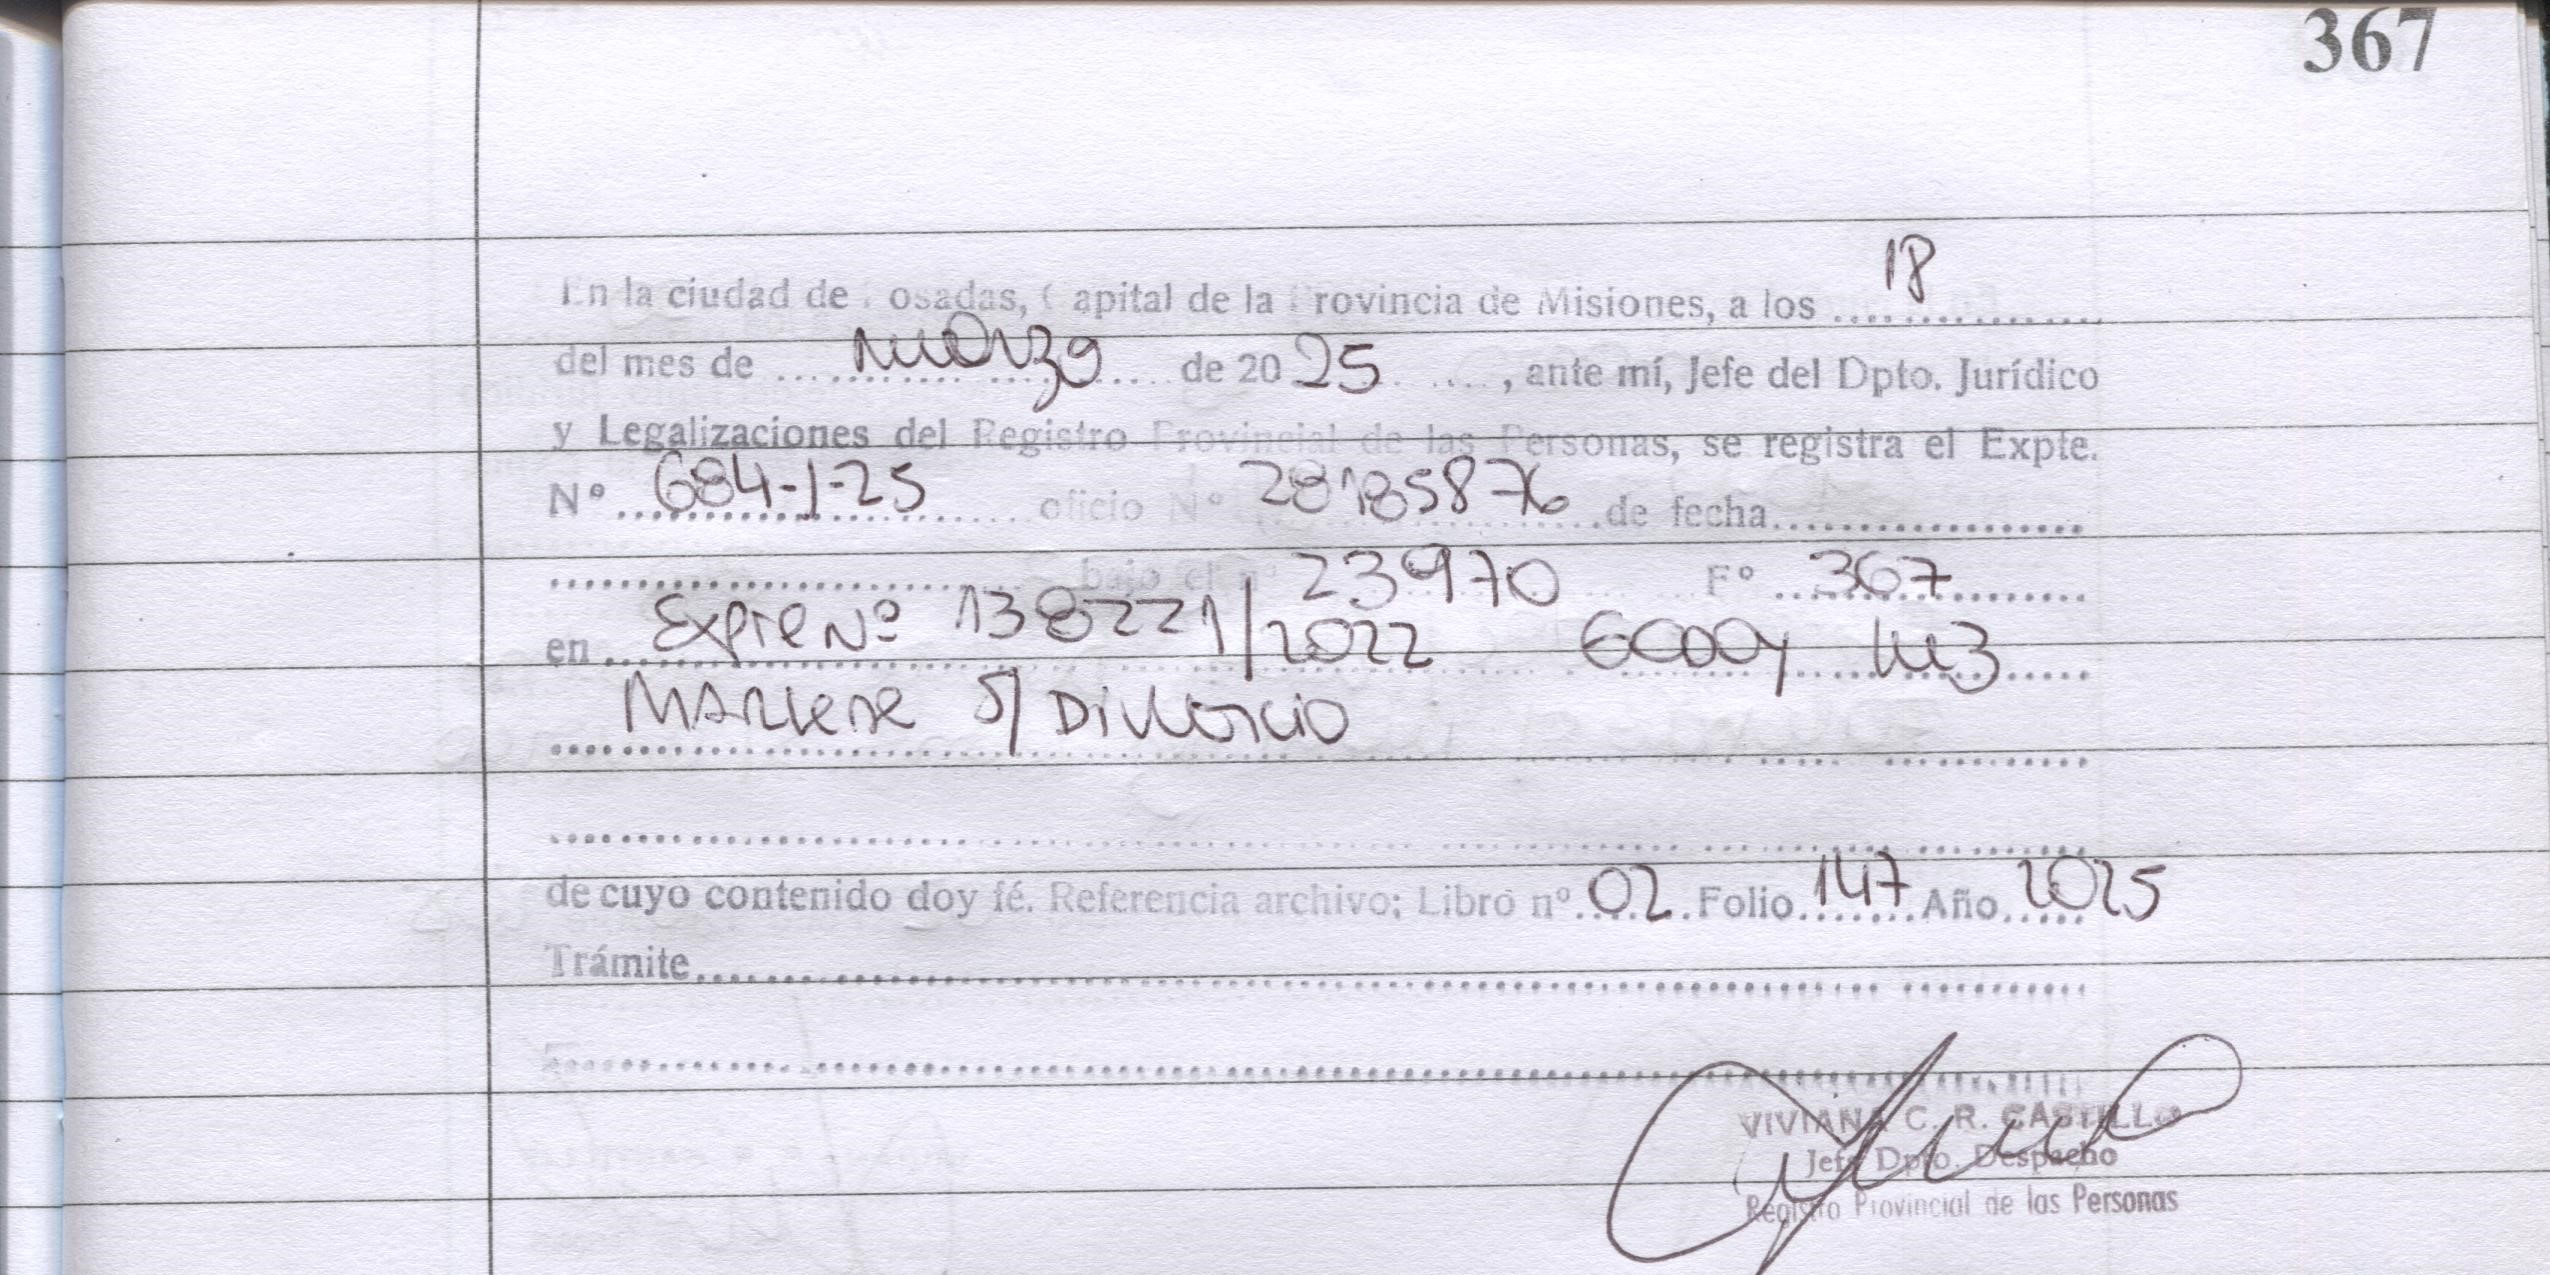 367
En la ciudad de Posadas, Capital de la Provincia de Misiones, a los 18
del mes de marzo de 2025, ante mí, Jefe del Dpto. Jurídico
y Legalizaciones del Registro Provincial de las Personas, se registra el Expte.
Nº 684-J-25 oficio Nº 28185876 de fecha
bajo el nº 23970 Fº 367
en Expte Nº 138221/2022 Luz
Marlene S/ Divorcio
de cuyo contenido doy fé. Referencia archivo; Libro nº 02 Folio 147 Año 2025
Trámite
VIVIANA C. R. CASTILLO
Jefe Dpto. Despacho
Registro Provincial de las Personas